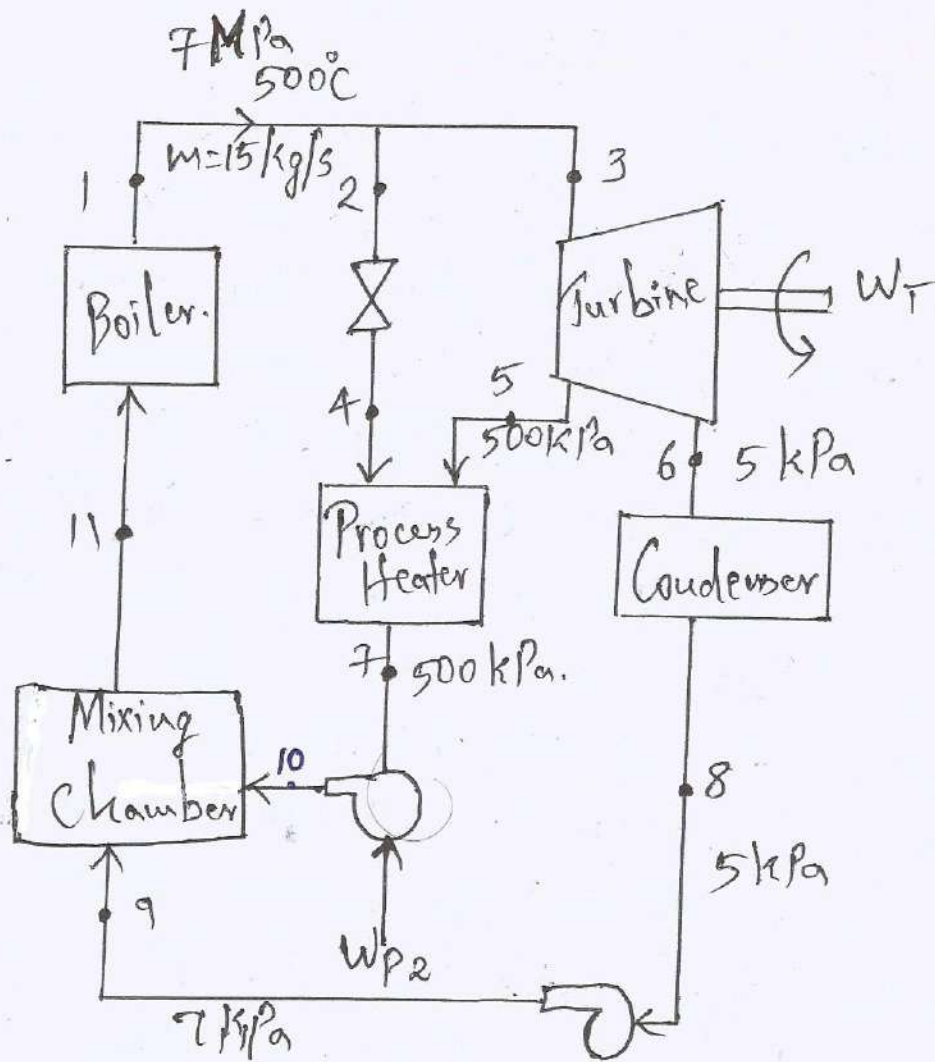 7 MPa
500°C
m=15 kg/s
1
2
3
Boiler.
Turbine
WT
4
5
500 kPa
6
5 kPa
11
Process
Heater
Condenser
7
500 kPa.
Mixing
Chamber
10
8
5 kPa
9
WP2
7 kPa